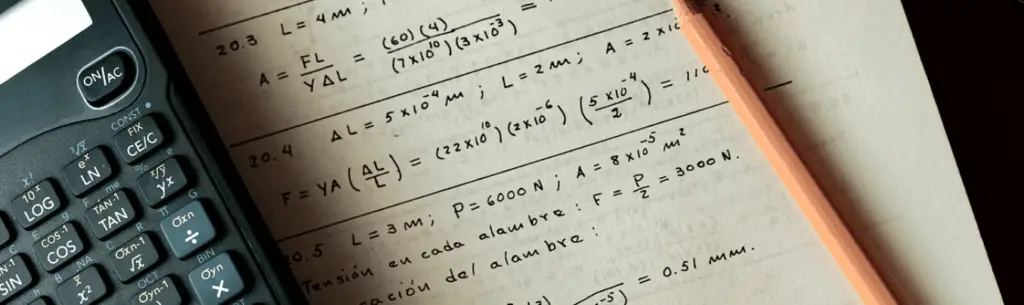 20.3 L = 4 m ;
A = FL / Y ΔL = (60)(4) / (7×10¹⁰)(3×10⁻³) =
20.4 ΔL = 5×10⁻⁴ m ; L = 2 m ; A = 2×10
F = YA (ΔL / L) = (22×10¹⁰)(2×10⁻⁶) (5×10⁻⁴ / 2) = 110
20.5 L = 3 m ; P = 6000 N ; A = 8×10⁻⁵ m²
Tensión en cada alambre : F = P / 2 = 3000 N.
ación del alambre :
= 0.51 mm.
ON/AC
CONST
FIX
CE/C
³√
eˣ
LN
ˣ√y
yx
x!
10ˣ
LOG
TAN-1
TAN
σxn
÷
COS-1
COS
σxn-1
√x
σyn
×
IN-1
SIN
NA
x²
OCT
σyn-1
BIN